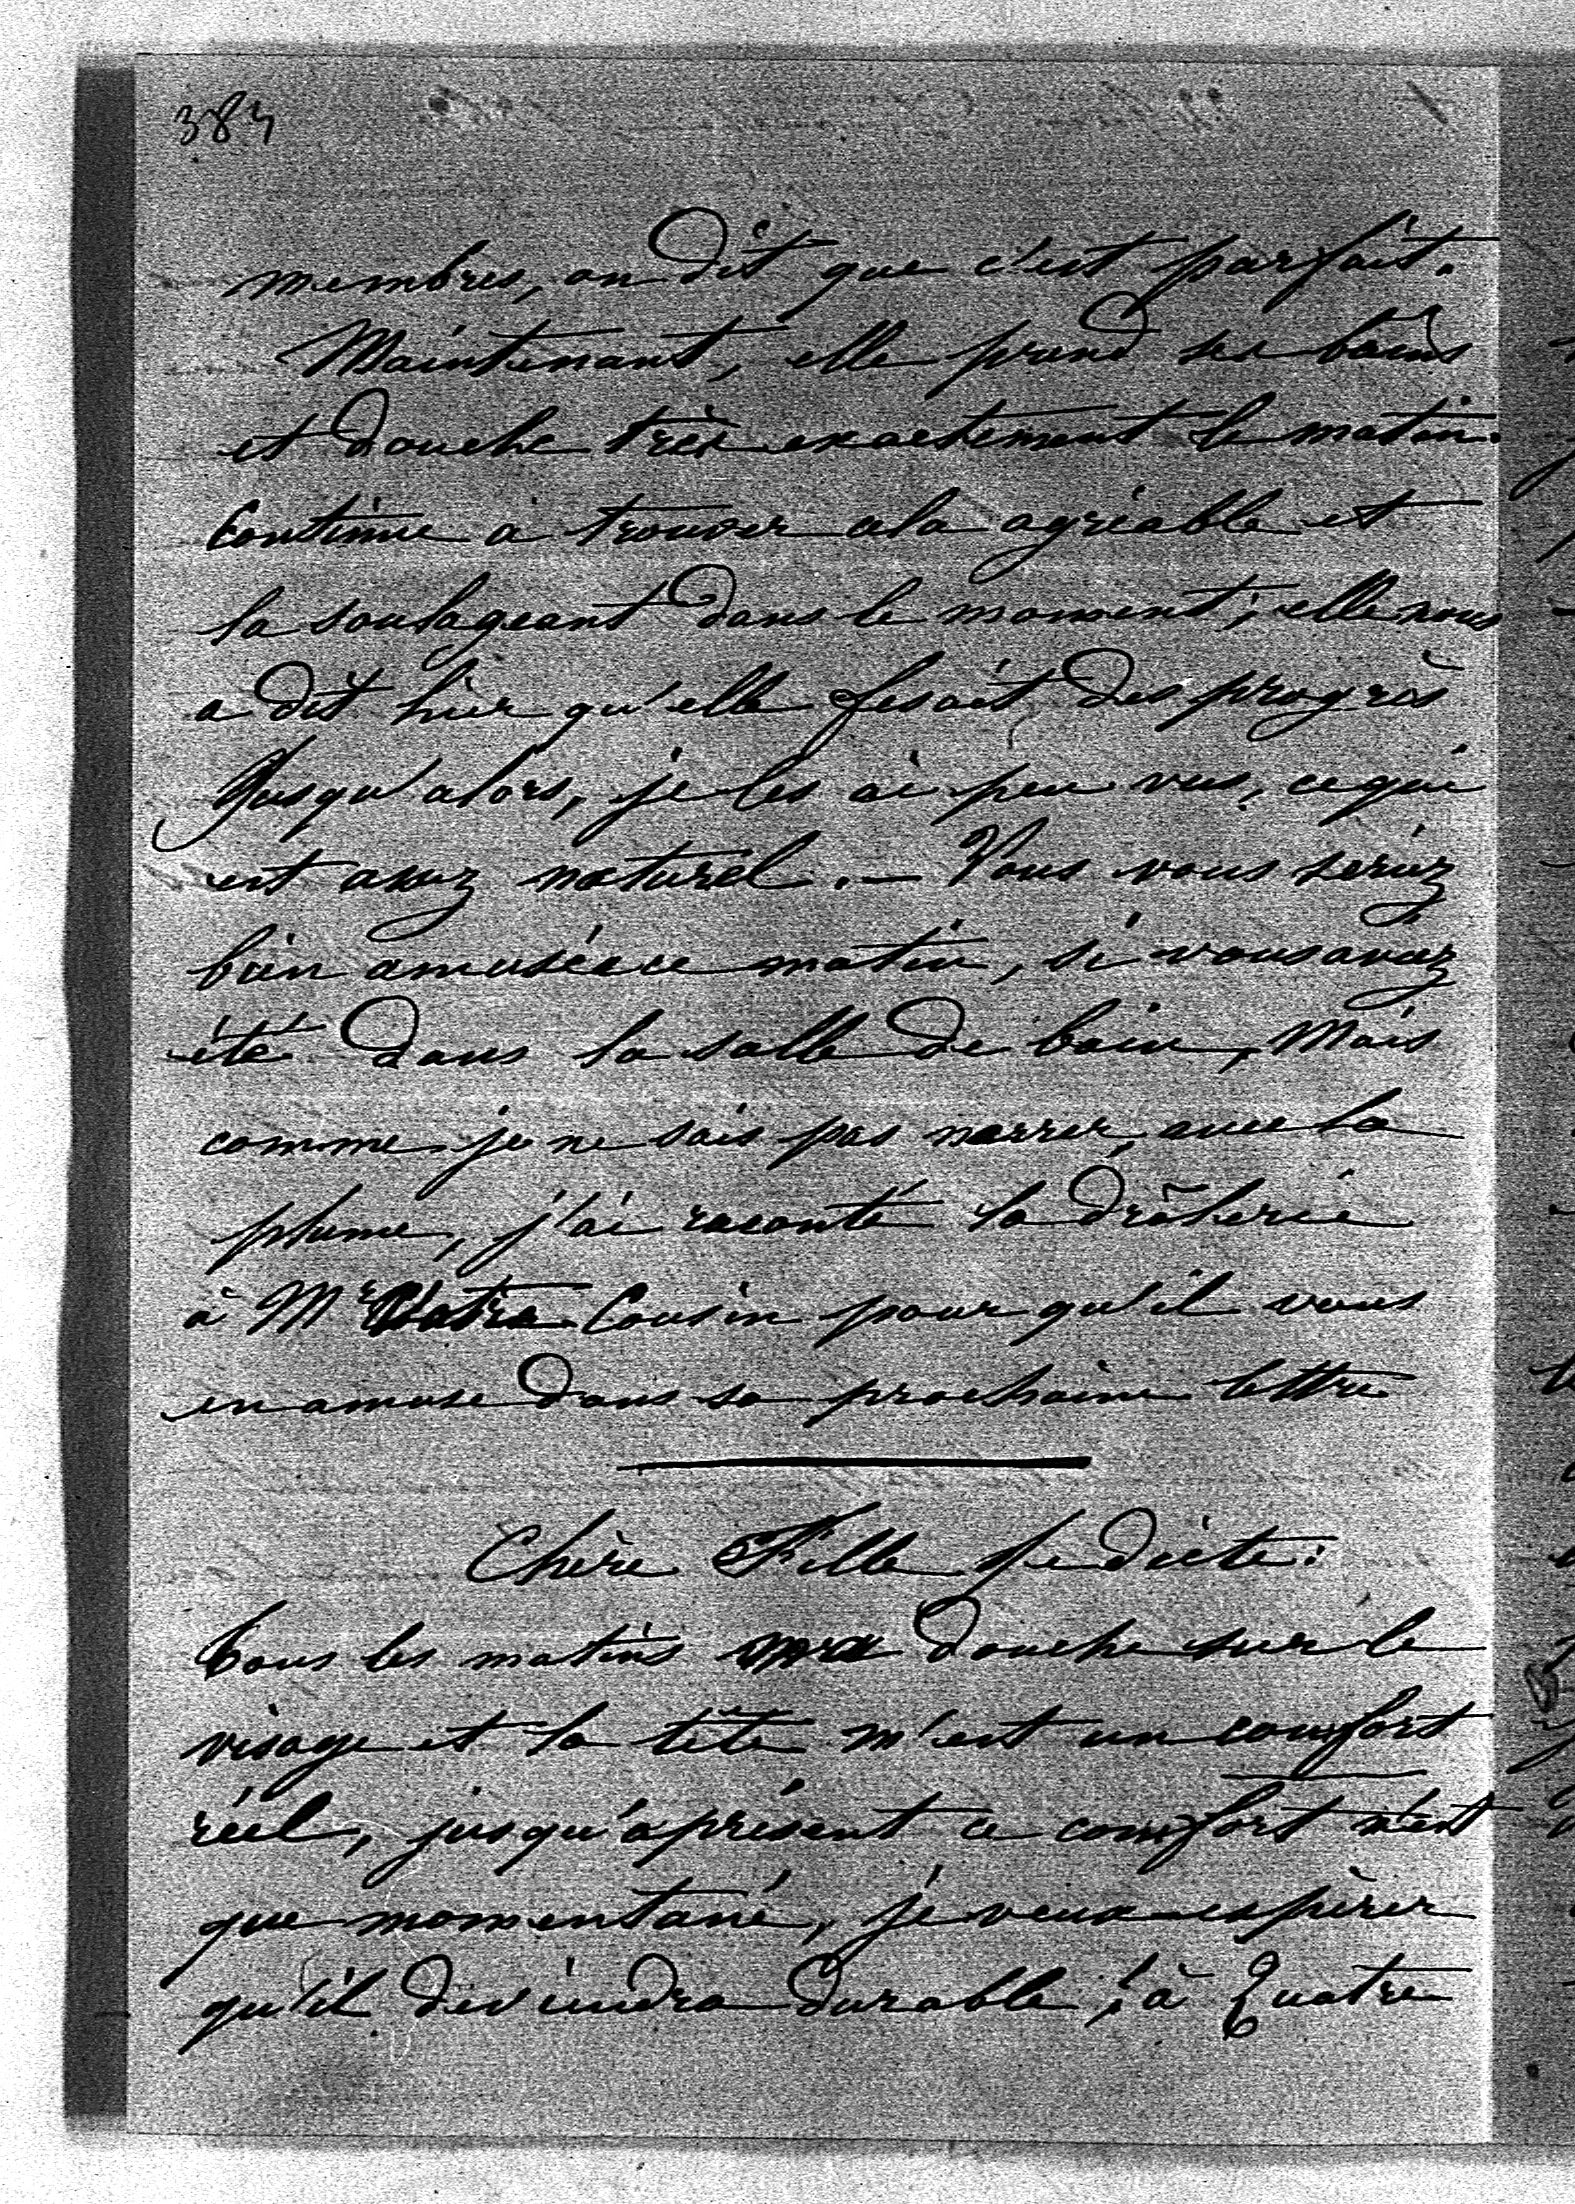 384
membres, on dit que c'est parfait.
Maintenant, elle prend ses bains
et douche très exactement le matin.
Continue à trouver cela agréable et
la soulageant dans le moment; elle nous
a dit hier qu'elle fesait des progrès
Jusqu'alors, je les ai peu vus, ce qui
est assez naturel. — Vous vous seriez
bien amusée ce matin, si vous aviez
été dans la salle de bain, Mais
comme je ne sais pas narrer, avec la
plume, j'ai raconté la drôlerie
à Mr Votre Cousin pour qu'il vous
en amuse dans sa prochaine lettre
Chère Fille je dicte:
Tous les matins ma douche sur le
visage et la tête m'est un comfort
réel, jusqu'à présent ce comfort n'est
que momentané, je veux espérer
qu'il deviendra durable; à Quatre